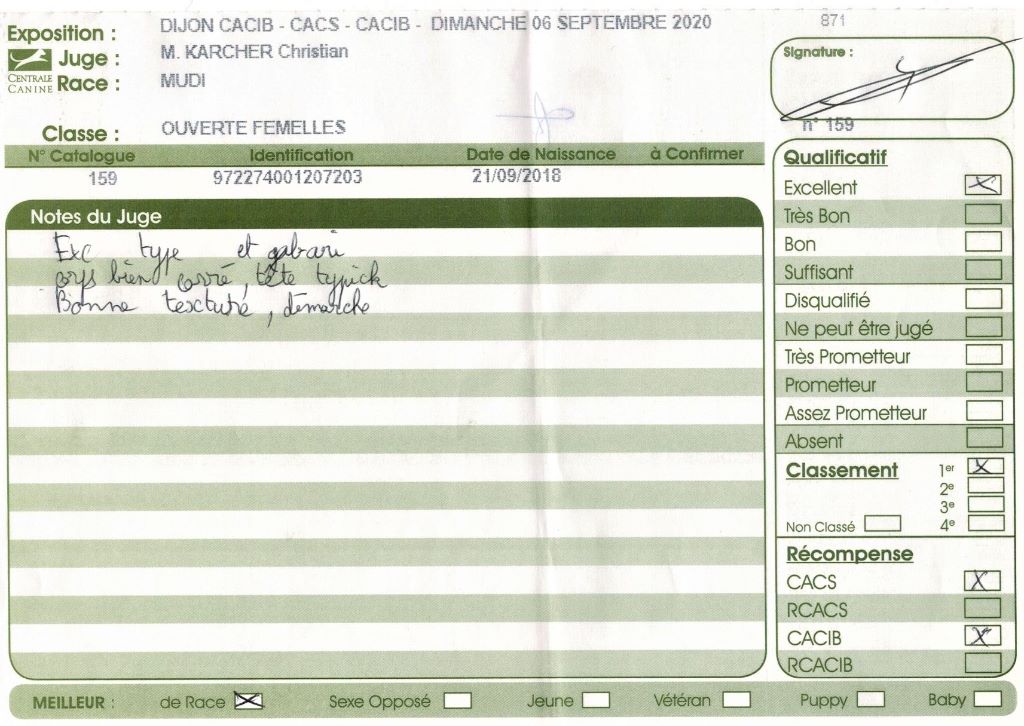 871
Exposition : DIJON CACIB - CACS - CACIB - DIMANCHE 06 SEPTEMBRE 2020
Juge : M. KARCHER Christian
CENTRALE CANINE
Race : MUDI
Classe : OUVERTE FEMELLES
N° Catalogue Identification Date de Naissance à Confirmer
159 972274001207203 21/09/2018
Notes du Juge
Exc type et gabari
corps bien carré, tête typick
Bonne texcture, démarche
Signature :
n° 159
Qualificatif
Excellent X
Très Bon
Bon
Suffisant
Disqualifié
Ne peut être jugé
Très Prometteur
Prometteur
Assez Prometteur
Absent
Classement 1er X
2e
3e
Non Classé 4e
Récompense
CACS X
RCACS
CACIB X
RCACIB
MEILLEUR : de Race X Sexe Opposé Jeune Vétéran Puppy Baby